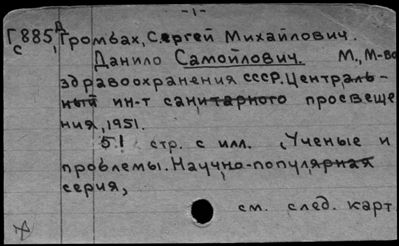 -1-
Г885 Д Громбах, Сергей Михайлович.
С
Данило Самойлович. М., М-во
здравоохранения СССР. Централь-
ный ин-т санитарного просвеще
ния, 1951.
51 стр. с илл. (Ученые и
проблемы. Научно-популярная
серия,
см. след. карт